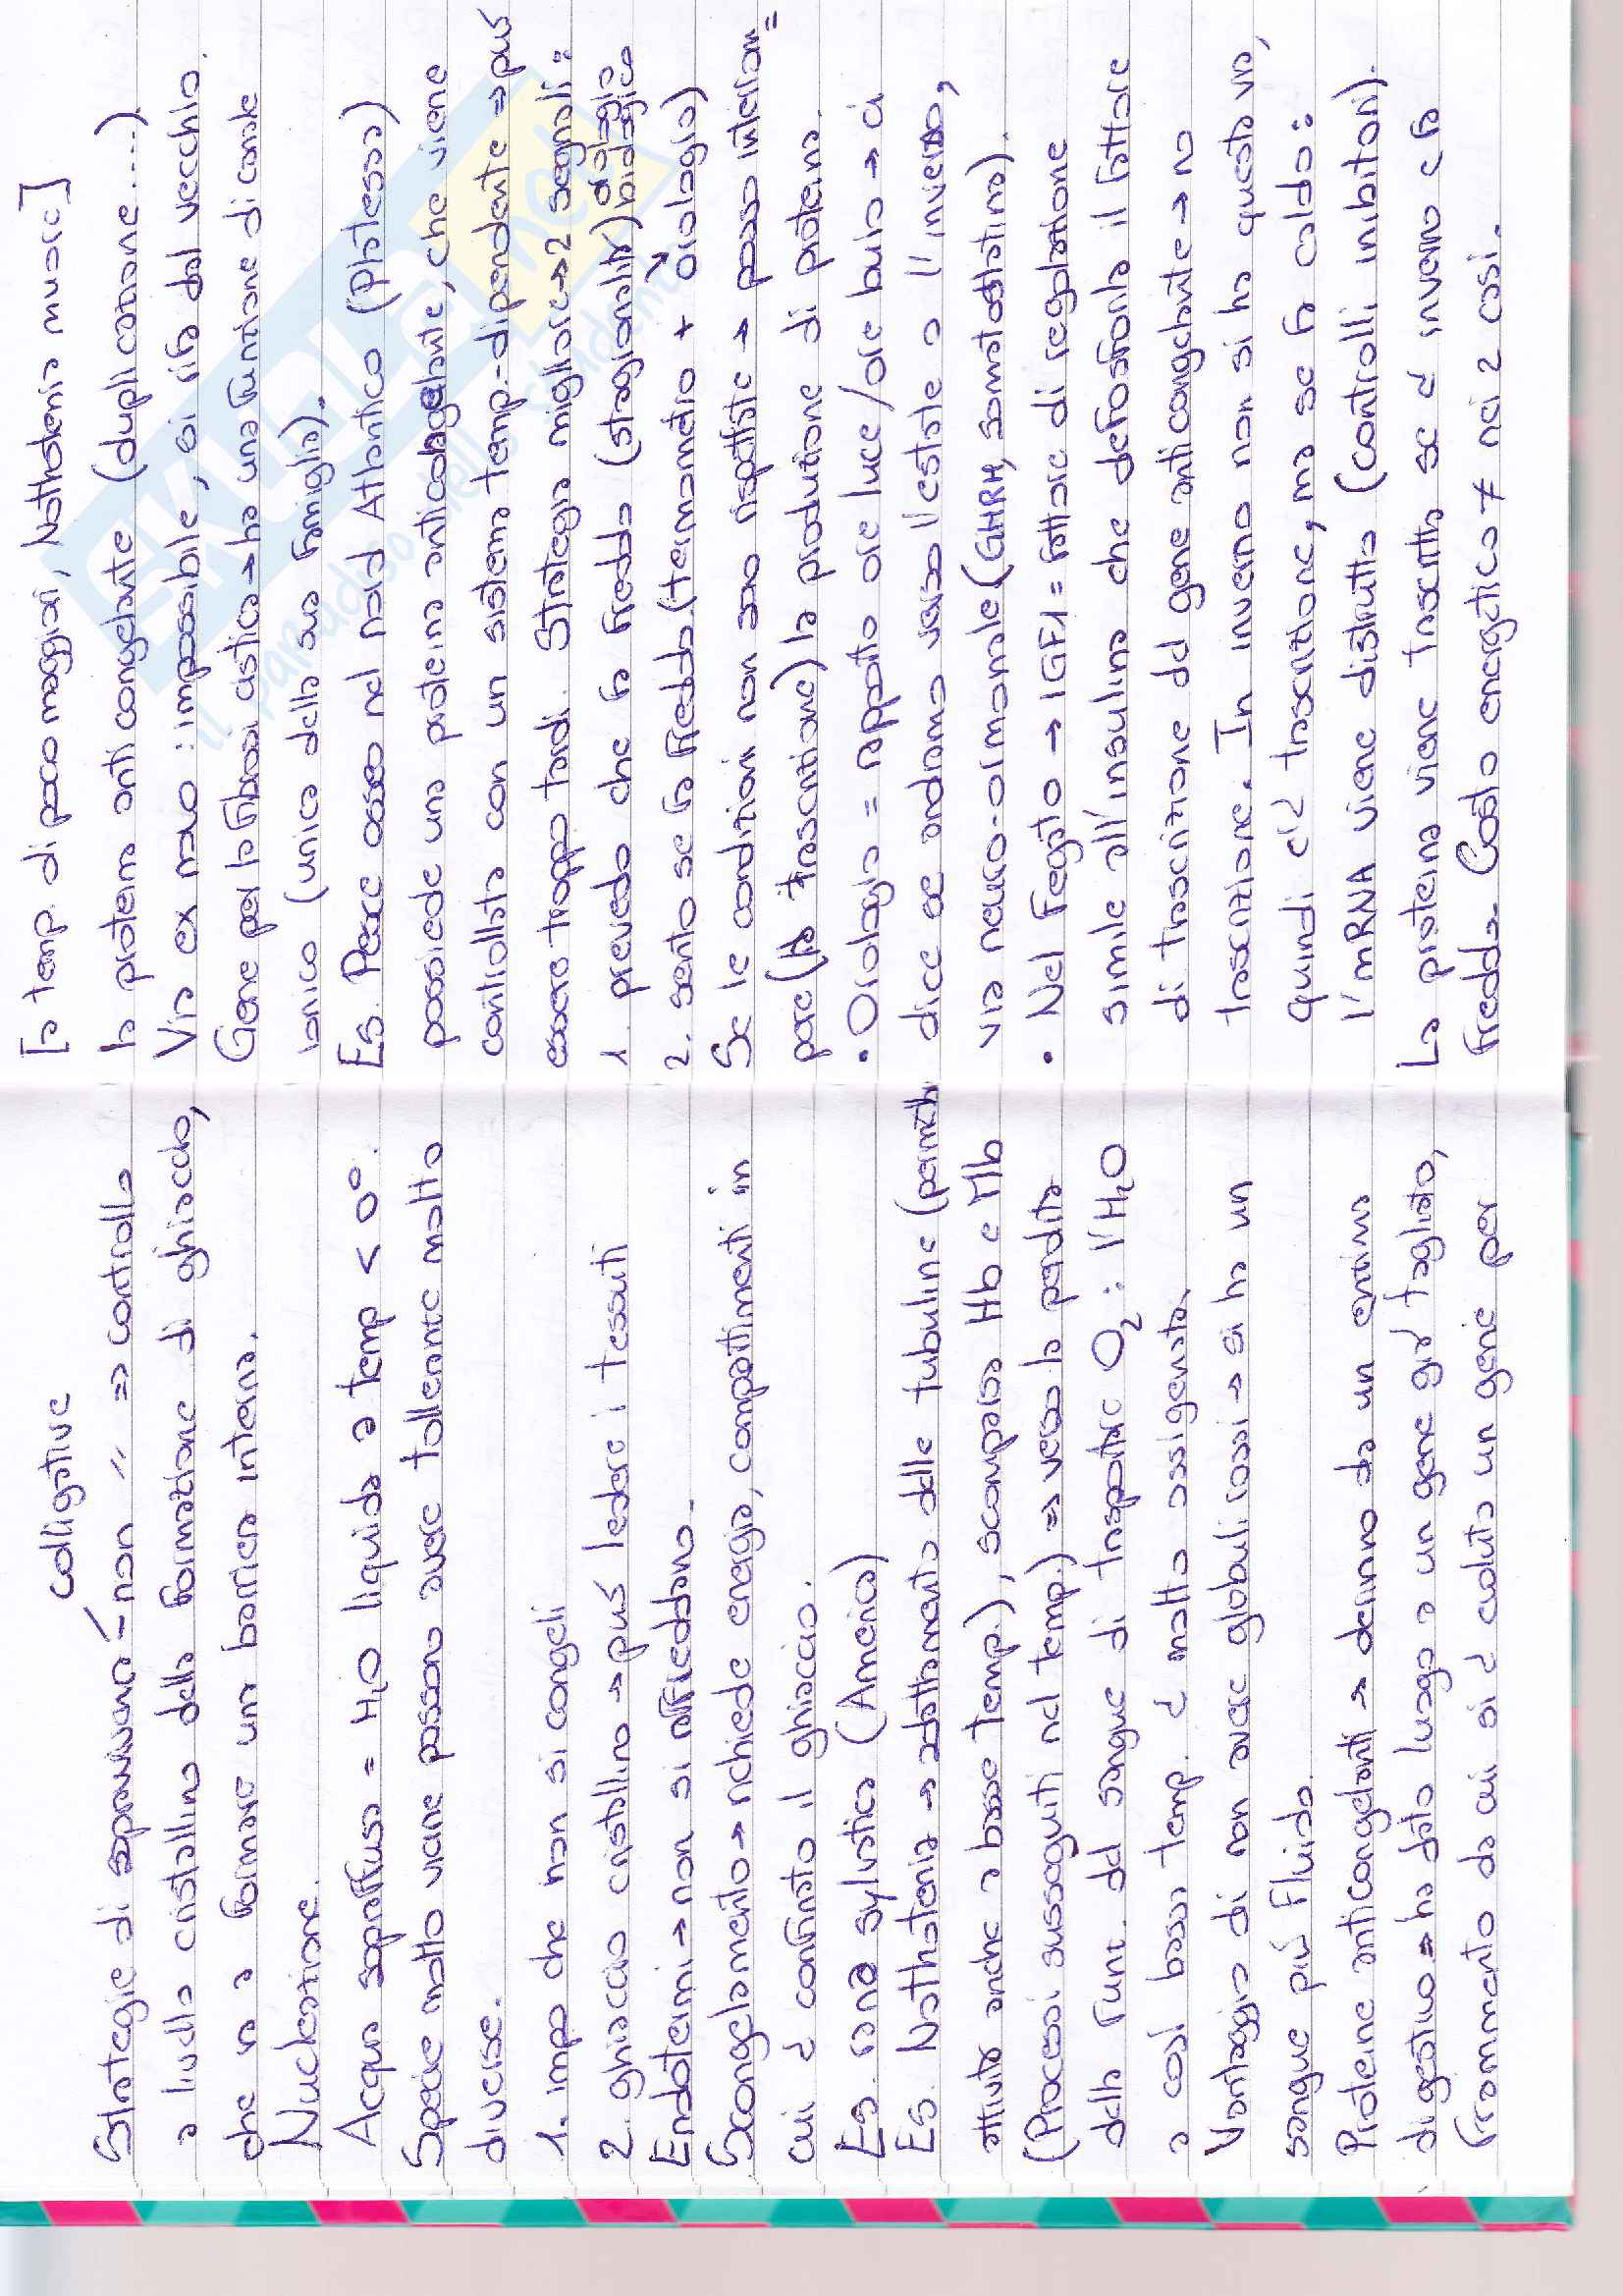 colligative
Strategie di sopravvivenza - non " => controllo
a livello cristallino della formazione di ghiaccio,
che va a formare una barriera interna.
Nucleazione.
Acqua sopraffusa = H2O liquida a temp < 0°.
Specie molto vicine possono avere tolleranze molto
diverse.
1. impo che non si congeli
2. ghiaccio cristallino → può ledere i tessuti
Endotermi → non si raffreddano.
Scongelamento → richiede energia, compartimenti in
cui è confinato il ghiaccio.
Es. rana sylvatica (America)
Es. Nothotenia → adattamento delle tubuline (
attività anche a basse temp.), scomparsa Hb e Mb
(Processi susseguiti nel temp.) => verso la perdita
della funz. del sangue di trasportare O2: l'H2O
a così basse temp. è molto ossigenata.
Vantaggio di non avere globuli rossi → si ha un
sangue più fluido.
Proteine anticongelanti → derivano da un enzima
digestivo => ha dato luogo a un gene già tagliato,
frammento da cui si è evoluto un gene per
[a temp. di poco maggiori, Nothotenia muore]
la protein anticongelante (duplicazione ...)
Via ex novo: impossibile, si rifà dal vecchio.
Gene per la fibrosi cistica → ha una funzione di canale
ionico (unico della sua famiglia).
Es. Pesce osseo nel nord Atlantico (Platessa)
possiede una proteina anticongelante, che viene
controllata con un sistema temp.-dipendente => può
essere troppo tardi. Strategia migliore → 2 segnali:
1. prevedo che fa freddo (stagionalità) orologio biologico
2. sento se fa freddo (termometro + orologio)
Se le condizioni non sono rispettate → posso interrom=
pere (la trascrizione) la produzione di proteina.
• Orologio = rapporto ore luce/ore buio → ci
dice se andiamo verso l'estate o l'inverno,
via neuro-ormonale (GHRH, somatostatina).
• Nel fegato → IGF1 = fattore di regolazione
simile all'insulina che defosforila il fattore
di trascrizione del gene anticongelante → no
trascrizione. In inverno non si ha questa via,
quindi c'è trascrizione, ma se fa caldo:
l'mRNA viene distrutto (controlli inibitori).
La proteina viene trascritta se è inverno e fa
freddo. Costo energetico ≠ nei 2 casi.
SKUOLA.net
il paradiso dello studente